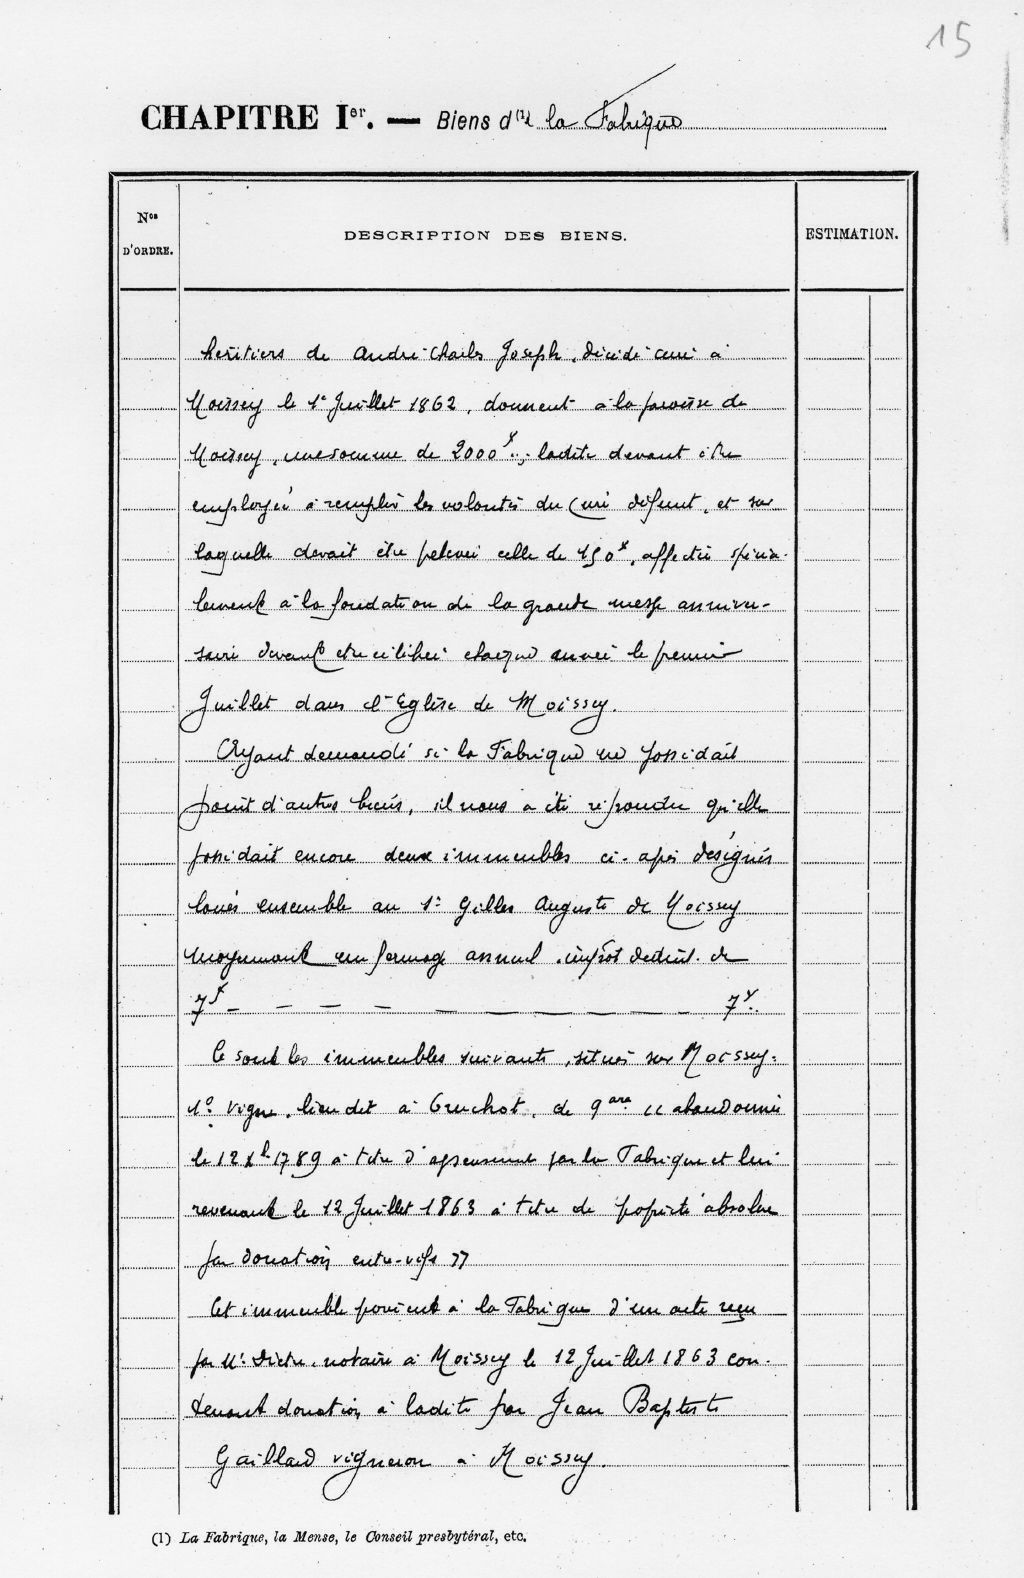 15
CHAPITRE Ier. — Biens d(1)e la Fabrique
Nos
D'ORDRE.
DESCRIPTION DES BIENS.
ESTIMATION.
héritiers de André Charles Joseph, décédé curé à
Moissey le 1er Juillet 1862, donnent à la paroisse de
Moissey, une somme de 2000f..; ladite devant être
employée à remplir les volontés du Curé défunt, et sur
laquelle devait être prélevé celle de 150f, affectée spécia-
lement à la fondation de la grande messe anniver-
saire devant être célébrée chaque année le premier
Juillet dans l'Eglise de Moissey.
Ayant demandé si la Fabrique ne possédait
point d'autres biens, il nous a été répondu qu'elle
possédait encore deux immeubles ci-après désignés
loués ensemble au Sr Gilles Auguste de Moissey
moyennant un fermage annuel, impôt déduit de
7f — — — — — — — — — — 7f..
Ce sont les immeubles suivants, situés sur Moissey:
1o Vigne, lieu dit à Cruchot, de 9 ares, abandonnée
le 12 Xbre 1789 à titre d'ascensement par la Fabrique et lui
revenant le 12 Juillet 1863 à titre de propriété absolue
par donation entre-vifs
Cet immeuble provient à la Fabrique d'un acte reçu
par Me, notaire à Moissey le 12 Juillet 1863 con-
tenant donation à ladite par Jean Baptiste
Gaillard vigneron à Moissey.
(1) La Fabrique, la Mense, le Conseil presbytéral, etc.